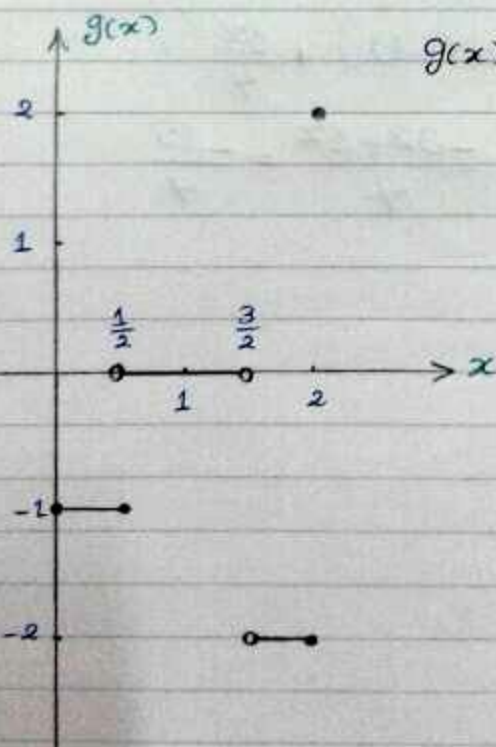 g(x)
g(x)
2
1
1/2 3/2
x
1 2
-1
-2